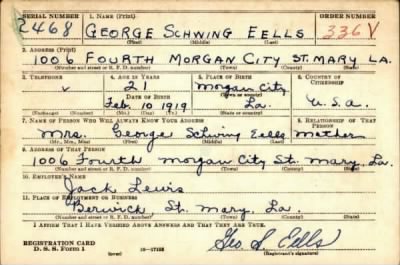 SERIAL NUMBER 1. NAME (Print) ORDER NUMBER
2468 GEORGE SCHWING EELLS 336 V
(First) (Middle) (Last)
2. ADDRESS (Print)
1006 FOURTH MORGAN CITY ST. MARY LA.
(Number and street or R. F. D. number) (Town) (County) (State)
3. TELEPHONE 4. AGE IN YEARS 5. PLACE OF BIRTH 6. COUNTRY OF CITIZENSHIP
21 Morgan City
DATE OF BIRTH (Town or county)
Feb. 10 1919 La. U.S.a.
(Exchange) (Number) (Mo.) (Day) (Yr.) (State or country)
7. NAME OF PERSON WHO WILL ALWAYS KNOW YOUR ADDRESS 8. RELATIONSHIP OF THAT PERSON
Mrs. George Schwing Eells Mother
(Mr., Mrs., Miss) (First) (Middle) (Last)
9. ADDRESS OF THAT PERSON
1006 Fourth Morgan City St. Mary, La.
(Number and street or R. F. D. number) (Town) (County) (State)
10. EMPLOYER'S NAME
Jack Lewis
11. PLACE OF EMPLOYMENT OR BUSINESS
Berwick St. Mary, La.
(Number and street or R. F. D. number) (Town) (County) (State)
I AFFIRM THAT I HAVE VERIFIED ABOVE ANSWERS AND THAT THEY ARE TRUE.
Geo S. Eells
REGISTRATION CARD
D. S. S. Form 1 (over) (Registrant's signature)